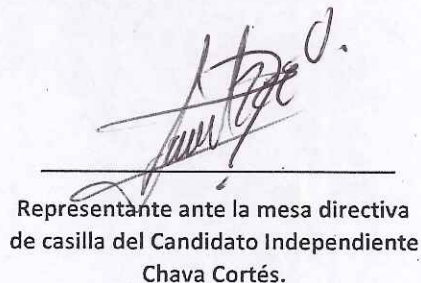 Representante ante la mesa directiva
de casilla del Candidato Independiente
Chava Cortés.